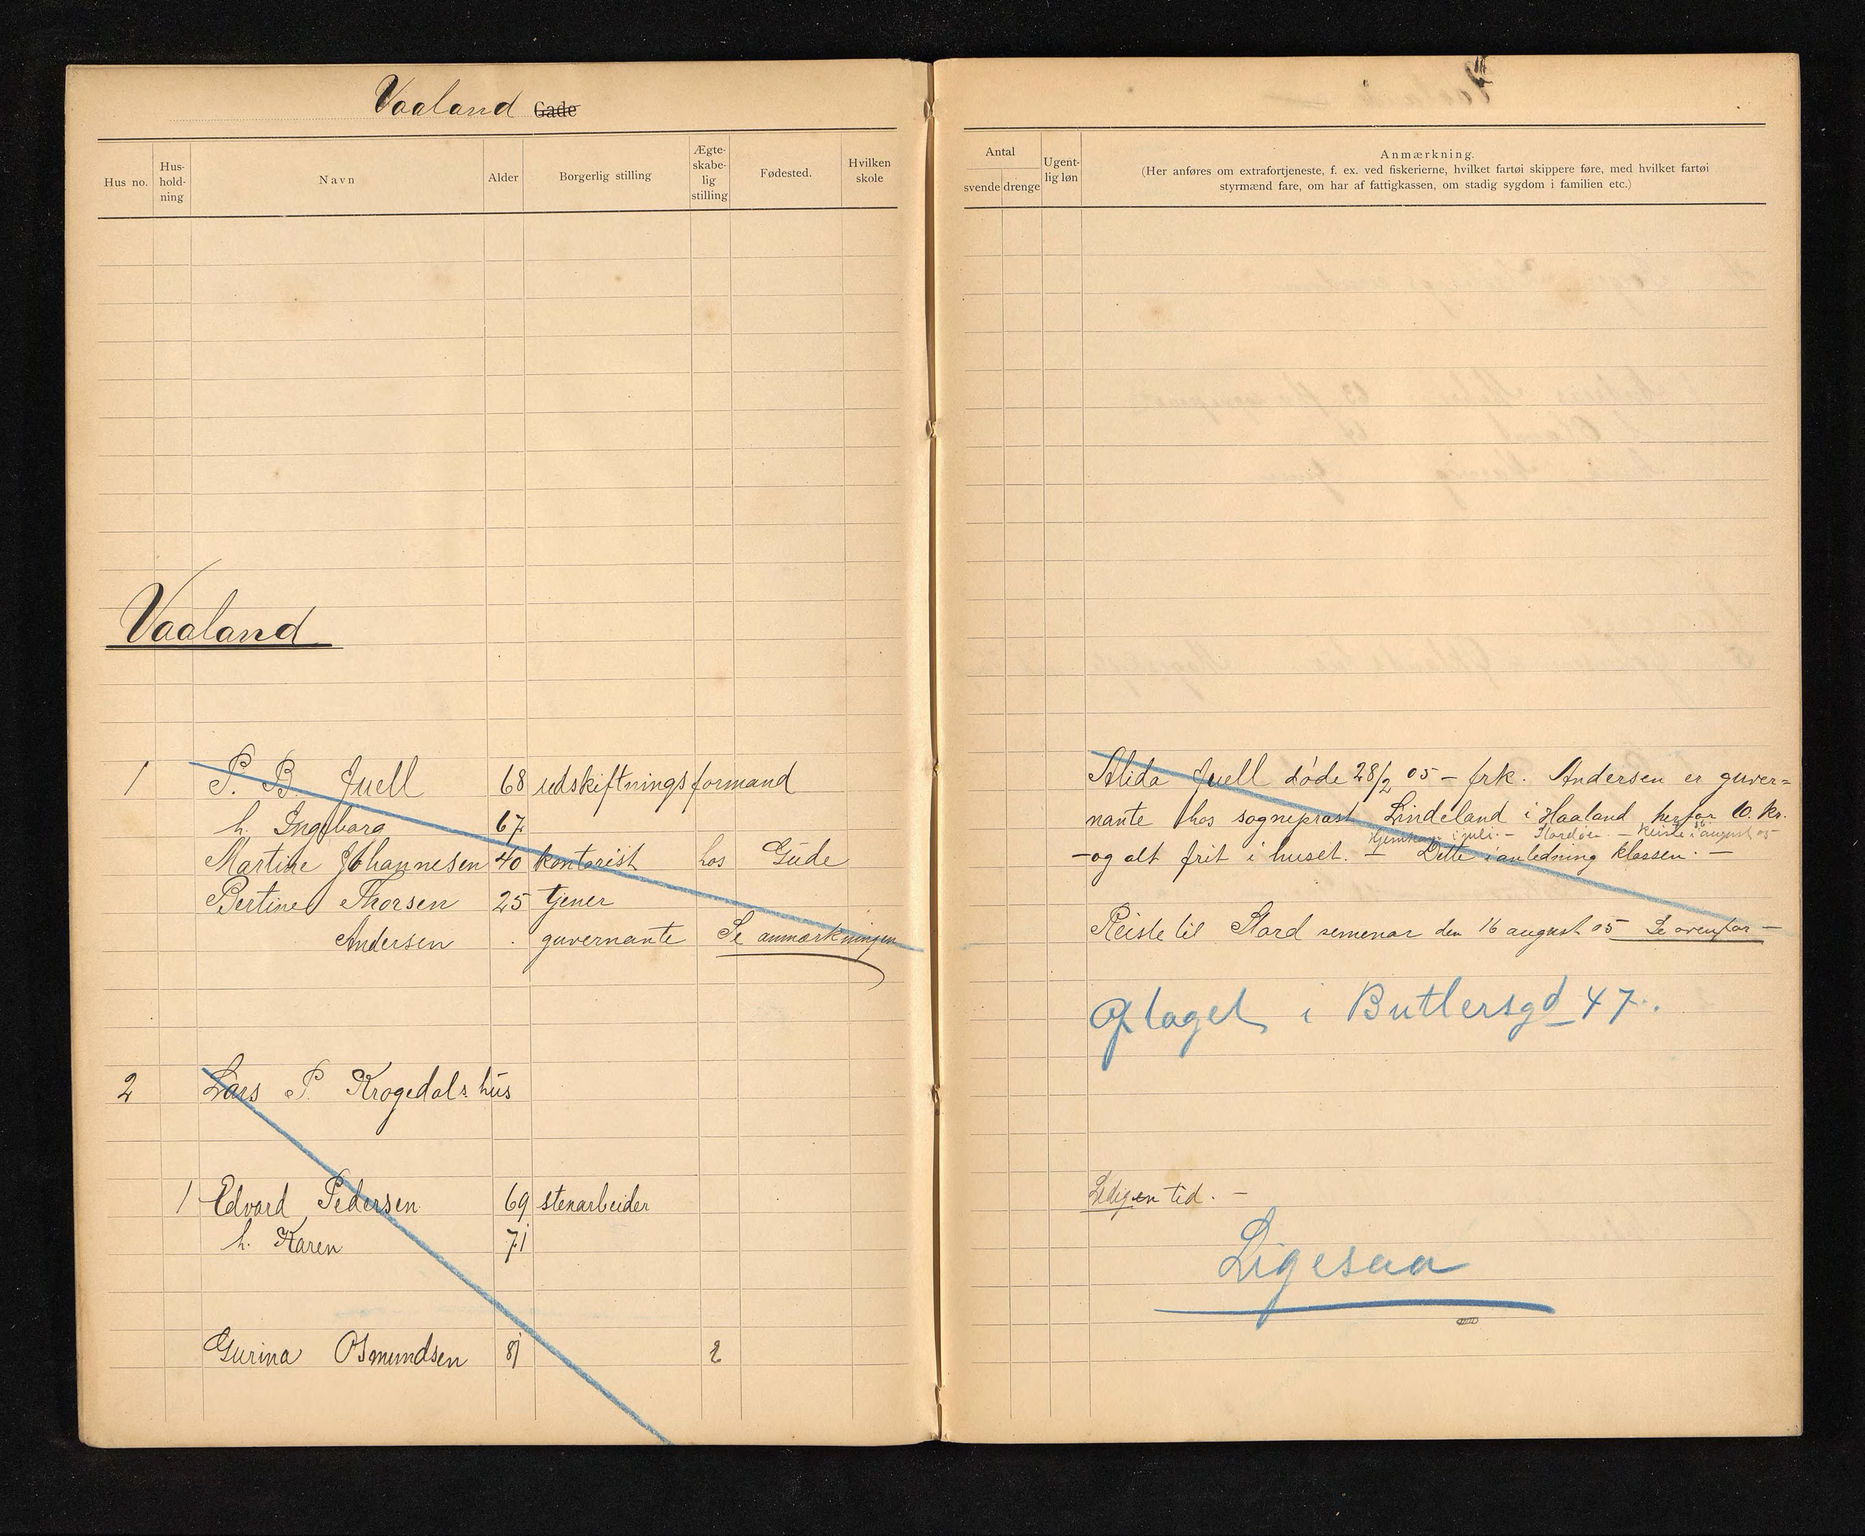 Vaaland Gade
Hus no.
Hus-
hold-
ning
Navn
Alder
Borgerlig stilling
Ægte-
skabe-
lig
stilling
Fødested.
Hvilken
skole
Vaaland
1 P. B. Juell 68 udskiftningsformand
h. Ingeborg 67
Martine Johannesen 40 kontorist hos Gude
Bertine Thorsen 25 tjener
Andersen guvernante Se anmærkningen
2 Lars P. Krogedals hus
1 Edvard Pedersen 69 stenarbeider
h. Karen 71
Gurina Osmundsen 81 e
Antal
svende drenge
Ugent-
lig løn
Anmærkning.
(Her anføres om extrafortjeneste, f. ex. ved fiskerierne, hvilket fartøi skippere føre, med hvilket fartøi
styrmænd fare, om har af fattigkassen, om stadig sygdom i familien etc.)
Alida Juell døde 28/2 05 – frk. Andersen er guver=
nante hos sogneprast Lindeland i Haaland, herfor 10. kr.
i juli. – – Reiste i august 05 –
– og alt frit i huset. – Dette i anledning klassen. –
Reiste til Stord semenar den 16 august 05 Se ovenfor –
Optaget i Butlersgd 47.
Ledig en tid. –
Ligesaa